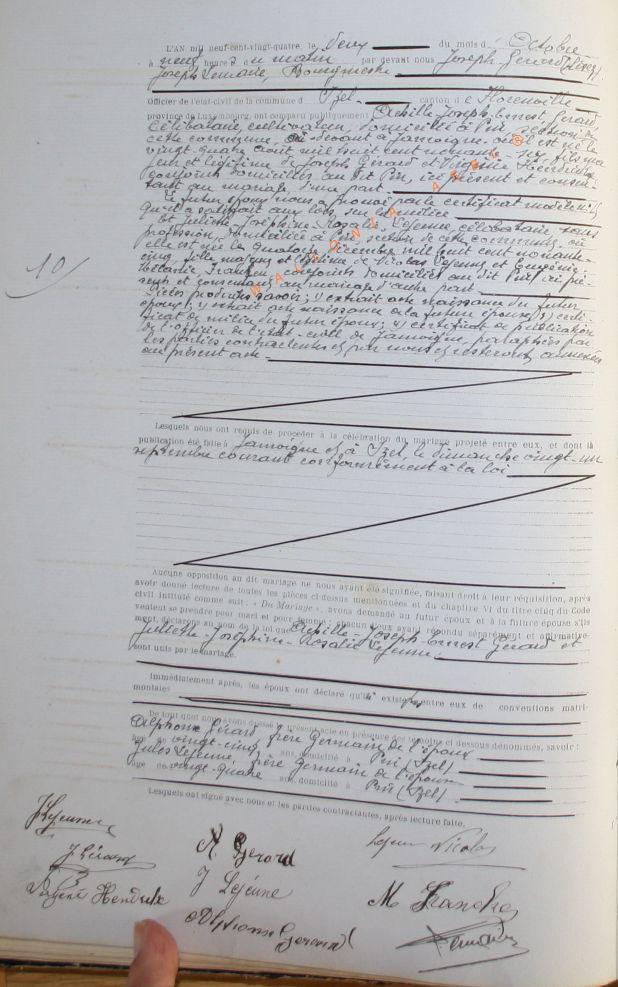 L'AN mil neuf-cent-vingt-quatre, le deux du mois d' Octobre
à neuf heures du matin par devant nous Joseph-Gérard
Joseph Bourgmestre
Officier de l'état-civil de la commune d' Izel canton de Florenville
province de Luxembourg, ont comparu publiquement Achille-Joseph-Ernest Gérard
célibataire, cultivateur, domicilié à Pin, section de
cette commune, devant à Jamoigne, où il est né le
vingt-quatre août mil huit cent nonante- fils ma
jeur et légitime de Joseph Gérard et Virginie Hendrick
conjoints domiciliés au dit Pin, ici présent et consen-
tant au mariage d'une part
Le futur époux nous a prouvé par le certificat modèle
qu'il a satisfait aux lois sur la milice
Et Juliette-Joséphine-Rosalie Lejeune, célibataire sans
profession, domiciliée à Pin, section de cette commune, où
elle est née le quatorze décembre mil huit cent nonante-
cinq, fille majeure et légitime de Nicolas Lejeune et Eugénie-
Mélanie conjoints domiciliés au dit Pin, ici pré-
sents et consentant au mariage d'autre part
Pièces produites savoir: 1) extrait acte naissance du futur
époux; 2) extrait acte naissance de la future épouse; 3) certi-
ficat de milice du futur époux; 4) certificat de publication
de l'officier de l'état-civil de Jamoigne, paraphées par
les parties contractantes et par nous et resteront annexées
au présent acte
10
WALLONIA ASBL
Lesquels nous ont requis de procéder à la célébration du mariage projeté entre eux, et dont la
publication été faite à Jamoigne et à Izel, le dimanche vingt-un
septembre courant conformément à la loi
Aucune opposition au dit mariage ne nous ayant été signifiée, faisant droit à leur réquisition, après
avoir donné lecture de toutes les pièces ci-dessus mentionnées et du chapitre VI du titre cinq du Code
civil intitulé comme suit : « Du Mariage », avons demandé au futur époux et à la future épouse s'ils
veulent se prendre pour mari et pour femme ; chacun d'eux ayant répondu séparément et affirmative-
ment, déclarons au nom de la loi que Achille-Joseph-Ernest Gérard et
Juliette-Joséphine-Rosalie Lejeune
sont unis par le mariage.
Immédiatement après, les époux ont déclaré qu'il existe entre eux de conventions matri-
moniales
De tout quoi nous avons dressé le présent acte en présence des témoins ci-dessous dénommés, savoir :
Alphonse Gérard, frère Germain de l'époux
âgé de vingt-cinq ans, domicilié à Pin (Izel)
Jules Lejeune, frère Germain de l'épouse
âgé de vingt-quatre ans, domicilié à Pin (Izel)
Lesquels ont signé avec nous et les parties contractantes, après lecture faite.
J Lejeune A. Gerard Lejeune Nicolas
J Gérard J Lejeune
Hendrick Alphonse Gerard